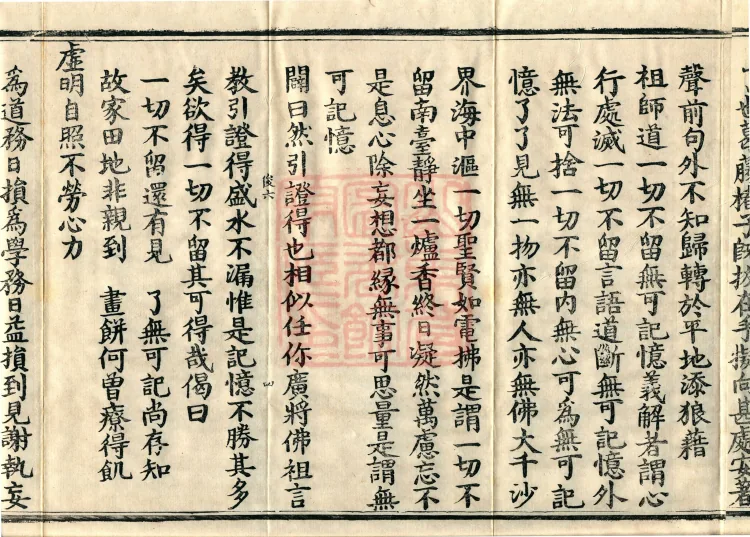 聲前句外不知歸轉於平地添狼藉
祖師道一切不留無可記憶義解者謂心
行處滅一切不留言語道斷無可記憶外
無法可捨一切不留內無心可為無可記
憶了了見無一物亦無人亦無佛大千沙
界海中漚一切聖賢如電拂是謂一切不
留南臺靜坐一爐香終日凝然萬慮忘不
是息心除妄想都緣無事可思量是謂無
可記憶
闢曰然引證得也相似任你廣將佛祖言
俊六
教引證得盛水不漏惟是記憶不勝其多
矣欲得一切不留其可得哉偈曰
一切不留還有見 了無可記尚存知
故家田地非親到 畫餅何曾療得飢
虛明自照不勞心力
為道務日損為學務日益損到見謝執妄